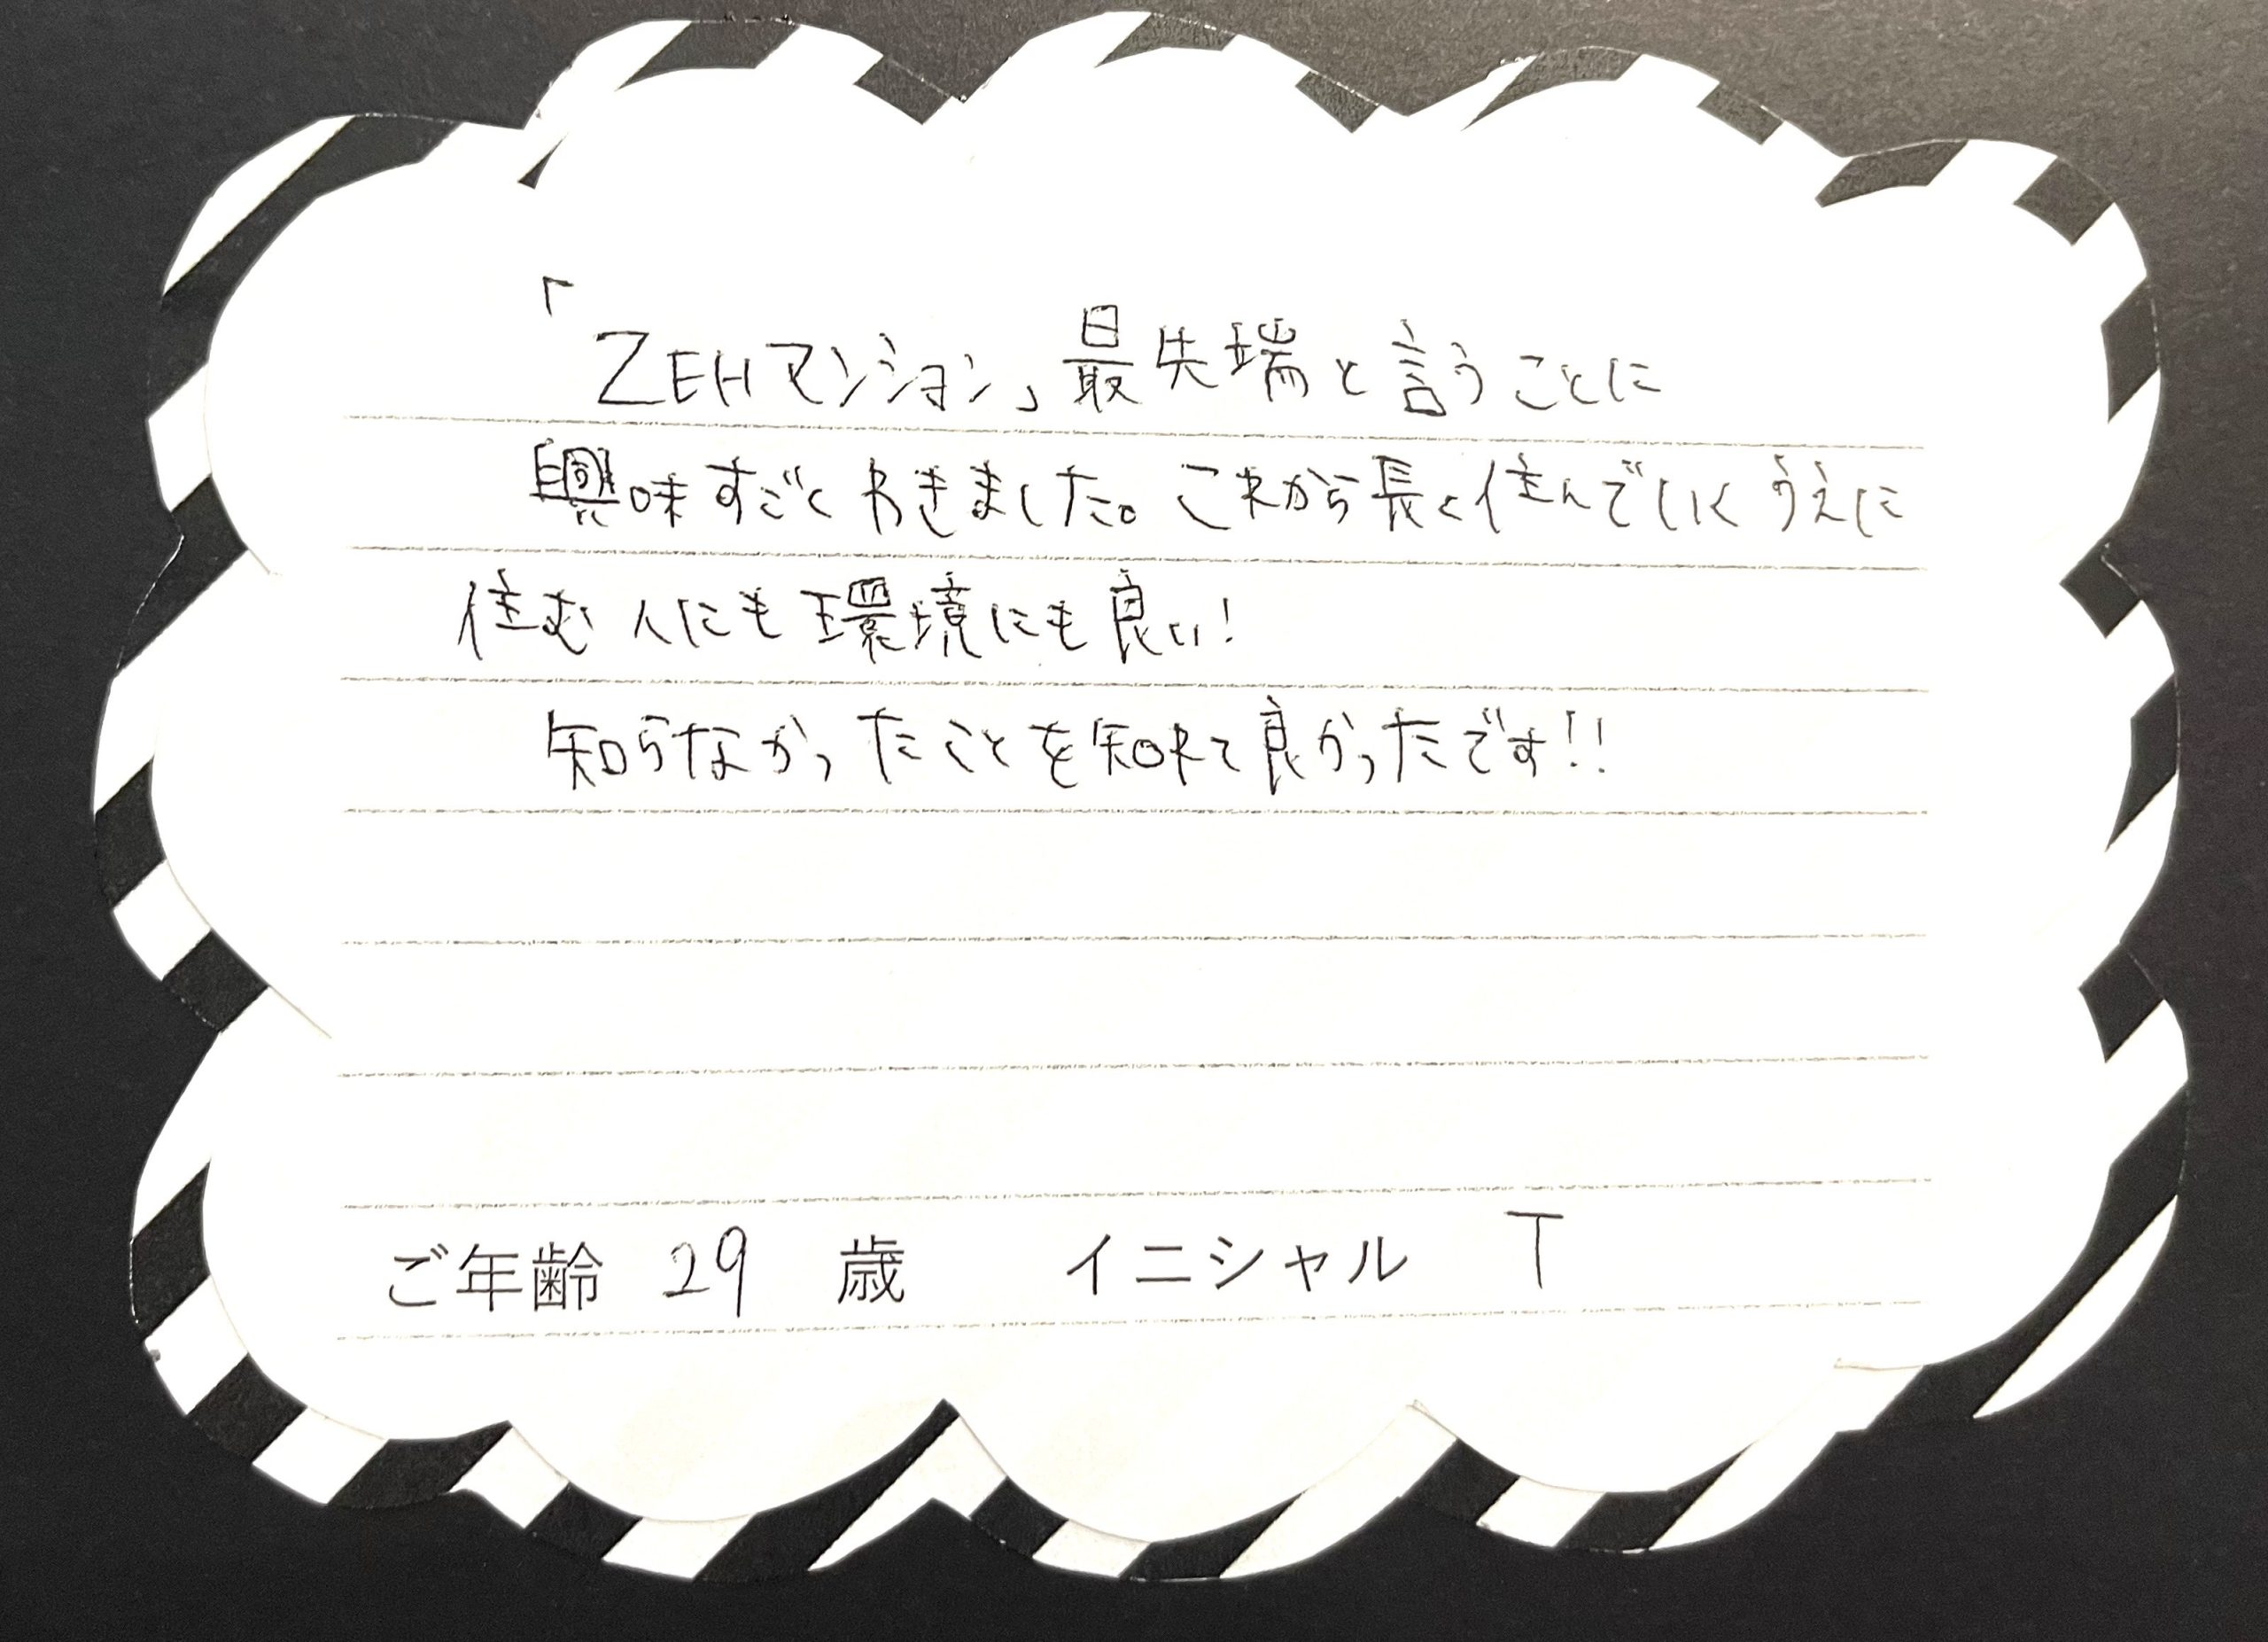 「ZEHマンション」最先端と言うことに
興味すごくわきました。これから長く住んでいくうえに
住む人にも環境にも良い!
知らなかったことを知れて良かったです!!
ご年齢 29 歳 イニシャル T